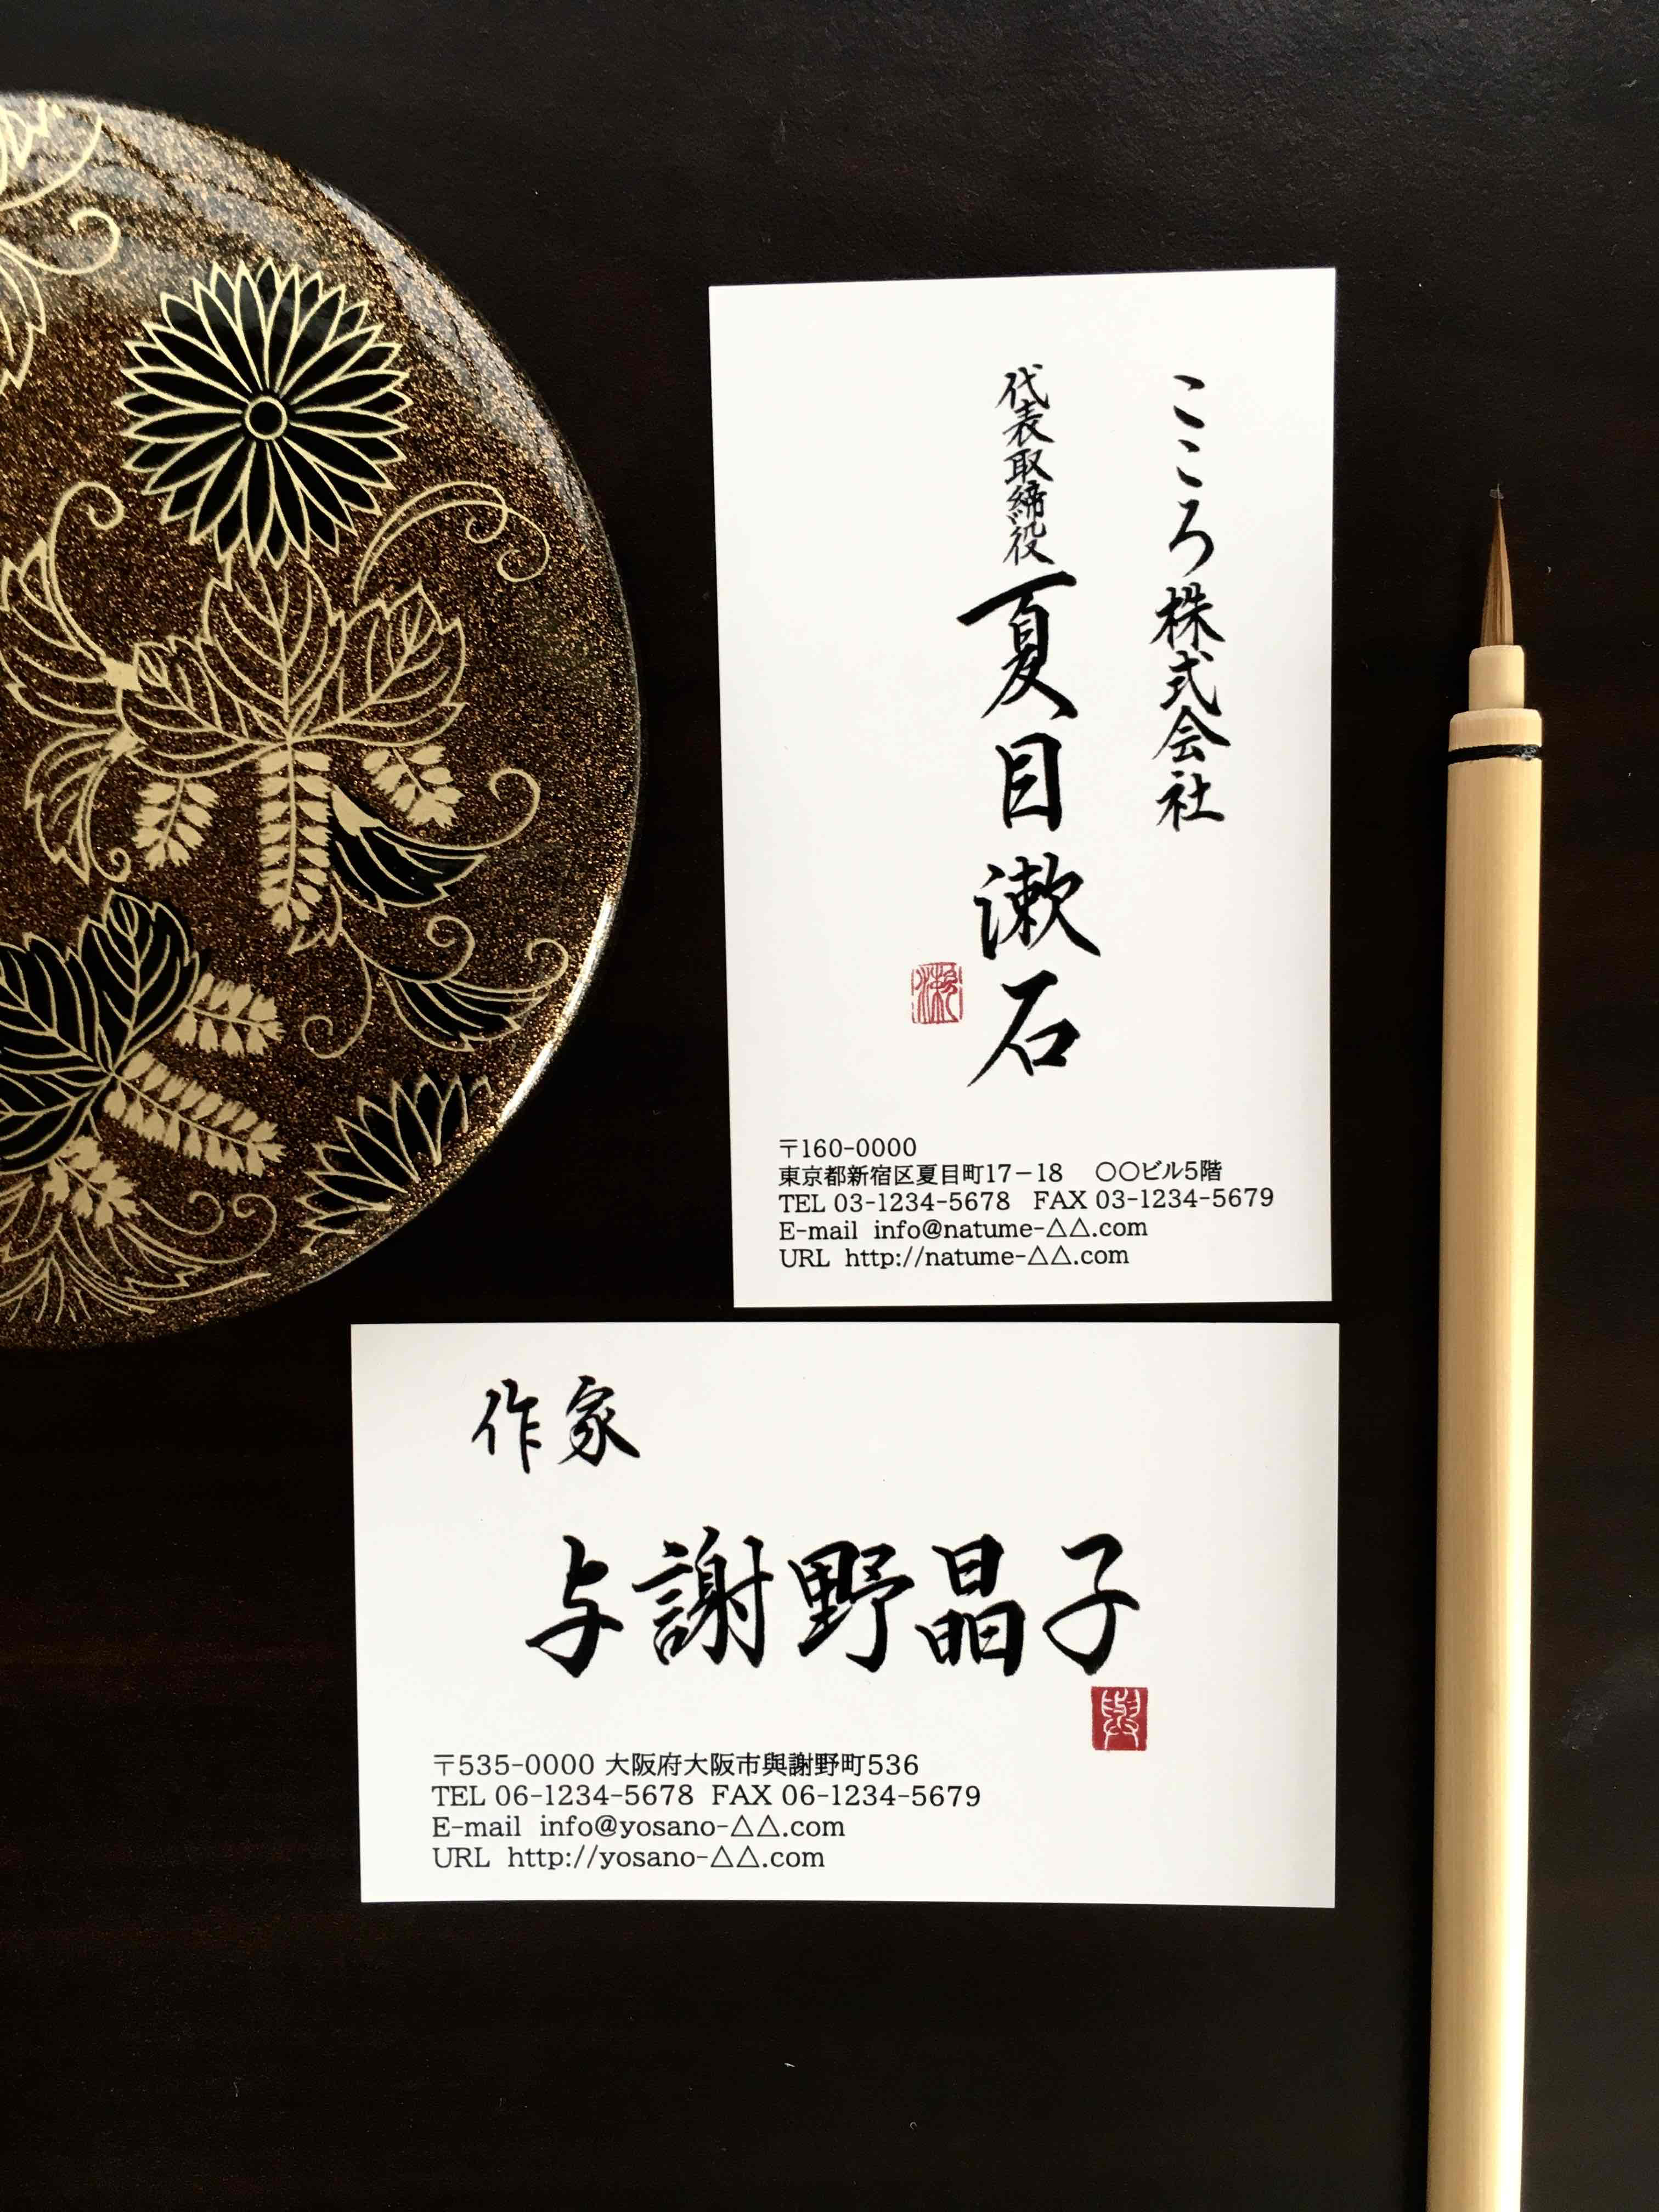 こころ株式会社
代表取締役 夏目漱石
〒160-0000
東京都新宿区夏目町17-18 ○○ビル5階
TEL 03-1234-5678 FAX 03-1234-5679
E-mail info@natume-△△.com
URL http://natume-△△.com
作家
与謝野晶子
與
〒535-0000 大阪府大阪市與謝野町536
TEL 06-1234-5678 FAX 06-1234-5679
E-mail info@yosano-△△.com
URL http://yosano-△△.com